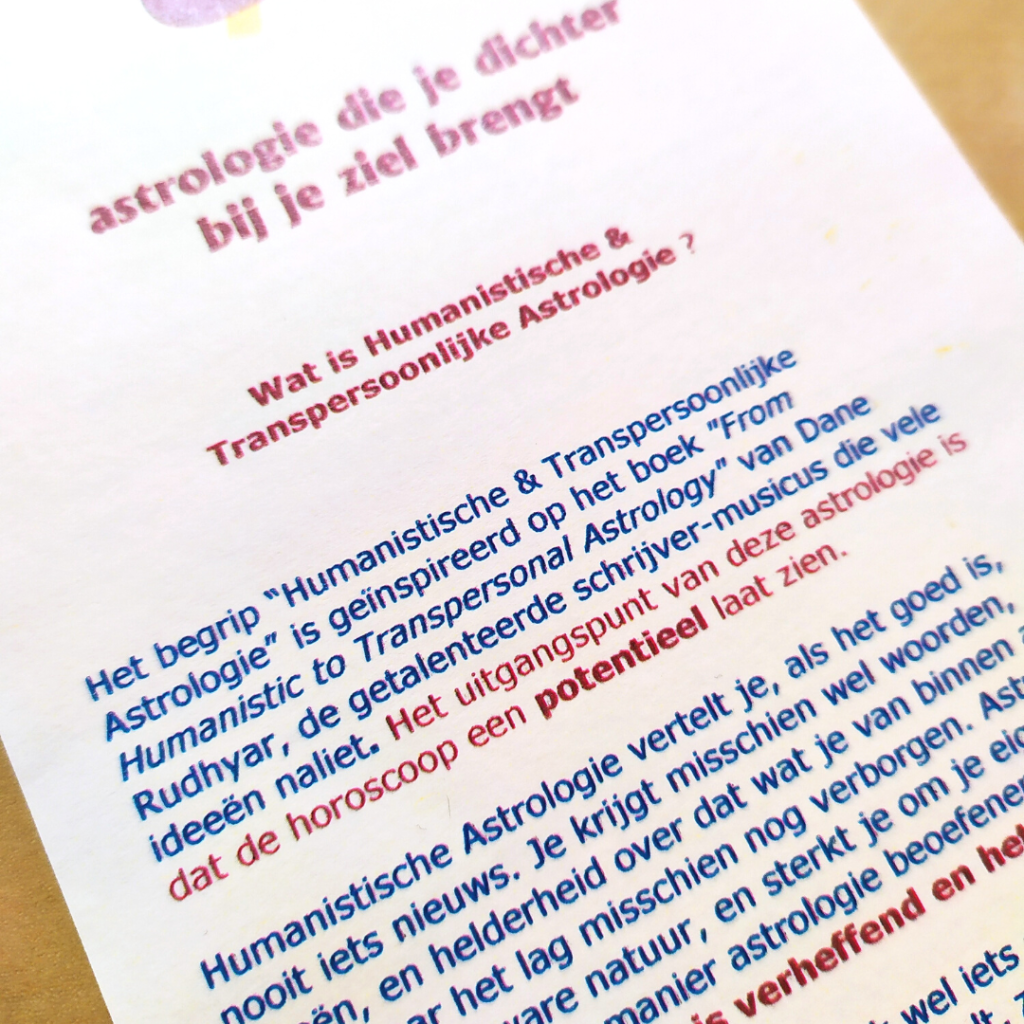 astrologie die je dichter
bij je ziel brengt
Wat is Humanistische &
Transpersoonlijke Astrologie ?
Het begrip “Humanistische & Transpersoonlijke
Astrologie” is geïnspireerd op het boek "From
Humanistic to Transpersonal Astrology” van Dane
Rudhyar, de getalenteerde schrijver-musicus die vele
ideeën naliet. Het uitgangspunt van deze astrologie is
dat de horoscoop een potentieel laat zien.
Humanistische Astrologie vertelt je, als het goed is,
nooit iets nieuws. Je krijgt misschien wel woorden,
en helderheid over dat wat je van binnen
het lag misschien nog verborgen.
natuur, en sterkt je om je
manier astrologie
is verheffend en
wel iets